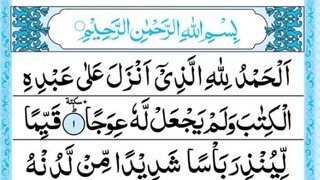 بِسْمِ اللهِ الرَّحْمٰنِ الرَّحِيْمِ
اَلْحَمْدُ لِلّٰهِ الَّذِيْۤ اَنْزَلَ عَلٰى عَبْدِهِ
الْكِتٰبَ وَلَمْ يَجْعَلْ لَّهٗ عِوَجًا ؕ سكتة ۱ قَيِّمًا
لِّيُنْذِرَ بَاْسًا شَدِيْدًا مِّنْ لَّدُنْهُ